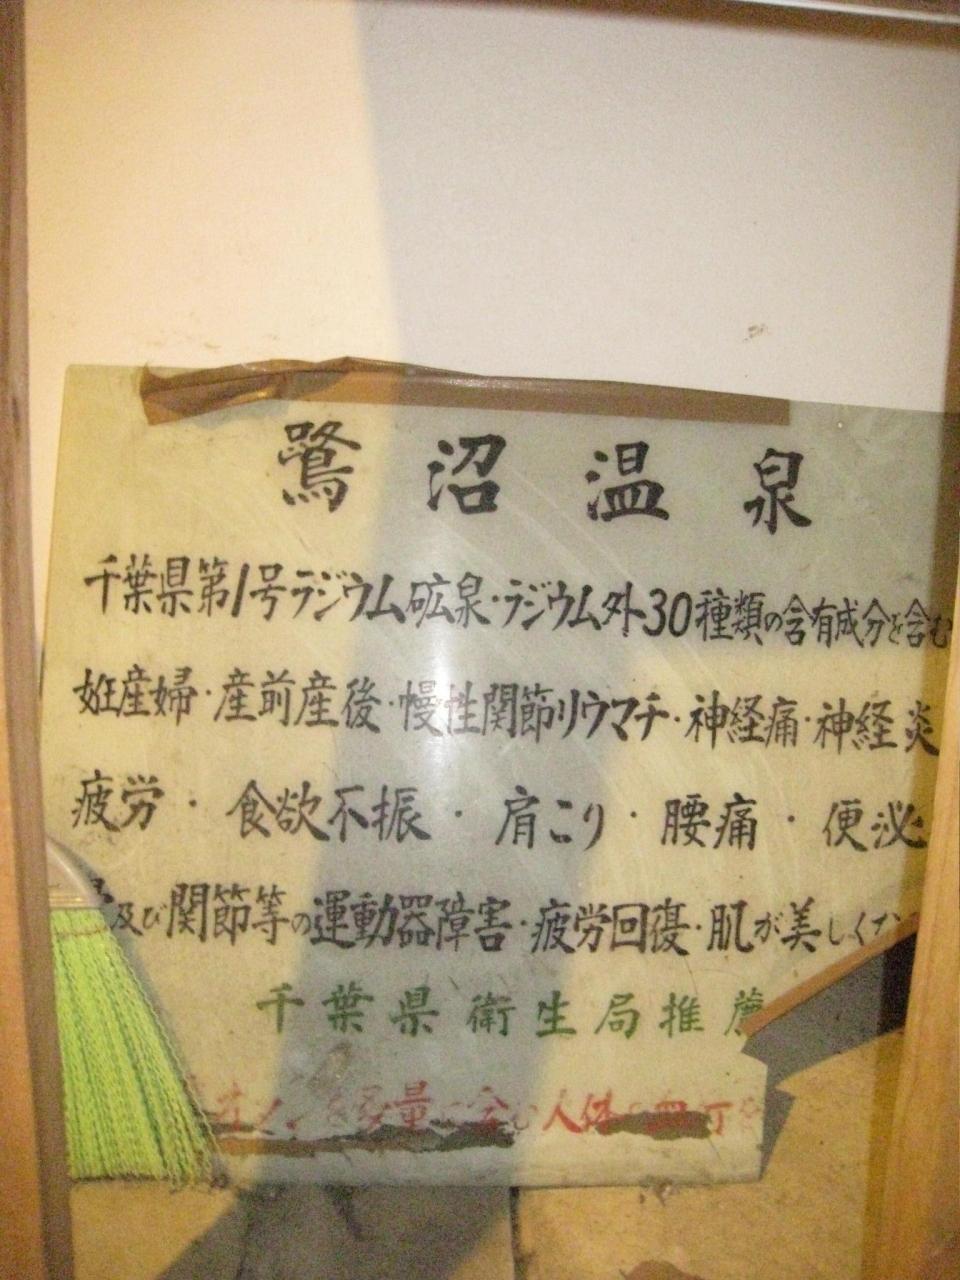 鷺沼温泉
千葉県第1号ラジウム砿泉・ラジウム外30種類の含有成分を含む
妊産婦・産前産後・慢性関節リウマチ・神経痛・神経炎
疲労・食欲不振・肩こり・腰痛・便泌
及び関節等の運動器障害・疲労回復・肌が美しくな
千葉県衛生局推薦
多量に含む人体